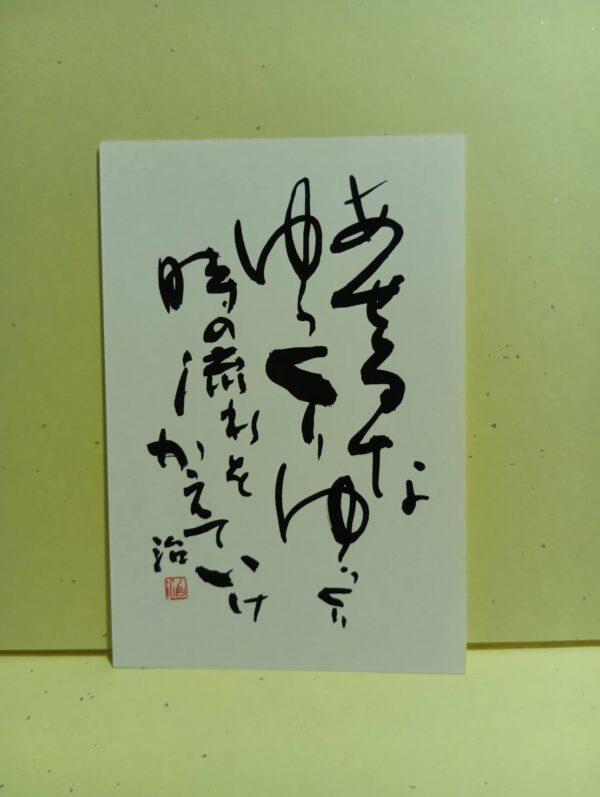 あせるな
ゆっくり
ゆっくり
時の流れを
かえていけ
治